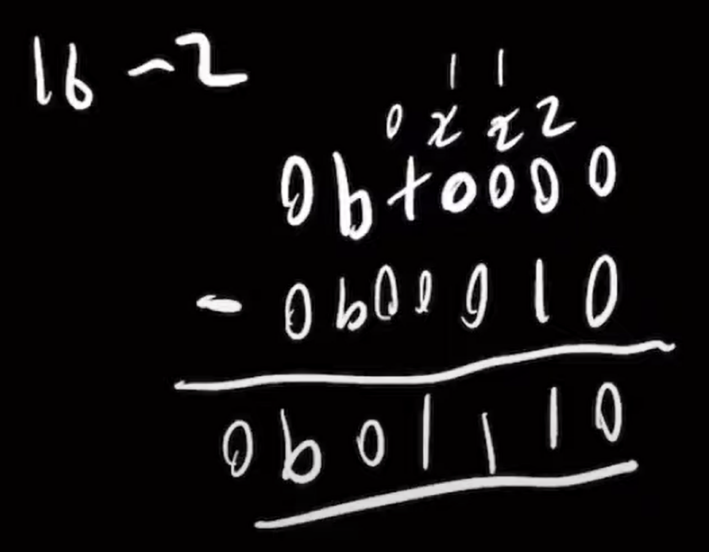 16 - 2
1 1
0 2 2 2
0b10000
- 0b00010
0b01110